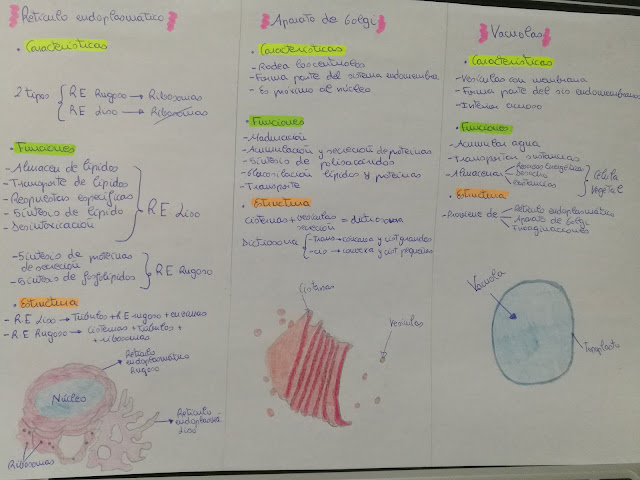 Retículo endoplasmático
· Características
2 tipos
R E Rugoso → Ribosomas
R E Liso → Ribosomas
· Funciones
- Almacen de lípidos
- Transporte de lípidos
- Respuestas específicas
- Síntesis de lípido
- Desintoxicación
R.E Liso
- Síntesis de proteínas
de secreción
- Síntesis de fosfolípidos
R.E Rugoso
· Estructura
- R.E Liso → Túbulos + R.E rugoso +
- R.E Rugoso → Cisternas + túbulos +
+ ribosomas
Retículo
endoplasmático
Rugoso
Núcleo
Retículo
endoplasma
Liso
Ribosomas
Aparato de Golgi
· Características
- Rodea los centriolos
- Forma parte del sistema endomembra
- Es próximo al núcleo
· Funciones
- Maduración
- Acumulación y secreción de proteínas
- Síntesis de polisacaridos
- Glucosilación lípidos y proteínas
- Transporte
· Estructura
cisternas + vesículas = dictiosoma
secreción
Dictiosoma
- trans → concava y cist grandes
- cis → convexa y cist pequeñas
Cisternas
Vesículas
Vacuolas
· Características
- Vesículas con membrana
- Forma parte del sis endomembranoso
- Interior acuoso
· Funciones
- Acumular agua
- Transportan sustancias
- Almacenan
Reservas Energéticas
Desecho
sustancias
Célula
vegetal
· Estructura
- Proviene de
Retículo endoplasmático
Aparato de Golgi
Invaginaciones
Vacuola
Tonoplasto